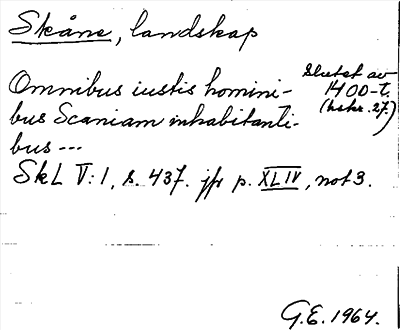 Skåne, landskap
Omnibus iustis homini-
bus Scaniam inhabitanti-
bus ---
Slutet av
1400-t.
(hskr. 27.)
SkL V:1, s. 437. jfr p. XLIV, not 3.
G.E. 1964.